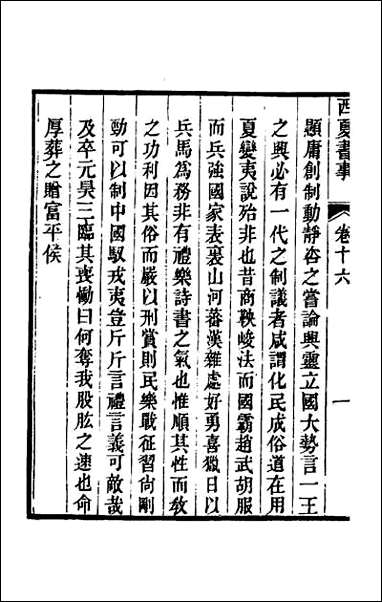 西夏書事
卷十六
一
顯庸創制動靜咨之嘗論興靈立國大勢言一王
之興必有一代之制議者咸謂化民成俗道在用
夏變夷說殆非也昔商鞅峻法而國霸趙武胡服
而兵強國家表裏山河蕃漢雜處好勇喜獵日以
兵馬為務非有禮樂詩書之氣也惟順其性而敎
之功利因其俗而嚴以刑賞則民樂戰征習尚剛
勁可以制中國馭戎夷豈斤斤言禮言義可敵哉
及卒元昊三臨其喪慟曰何奪我股肱之速也命
厚葬之贈富平侯